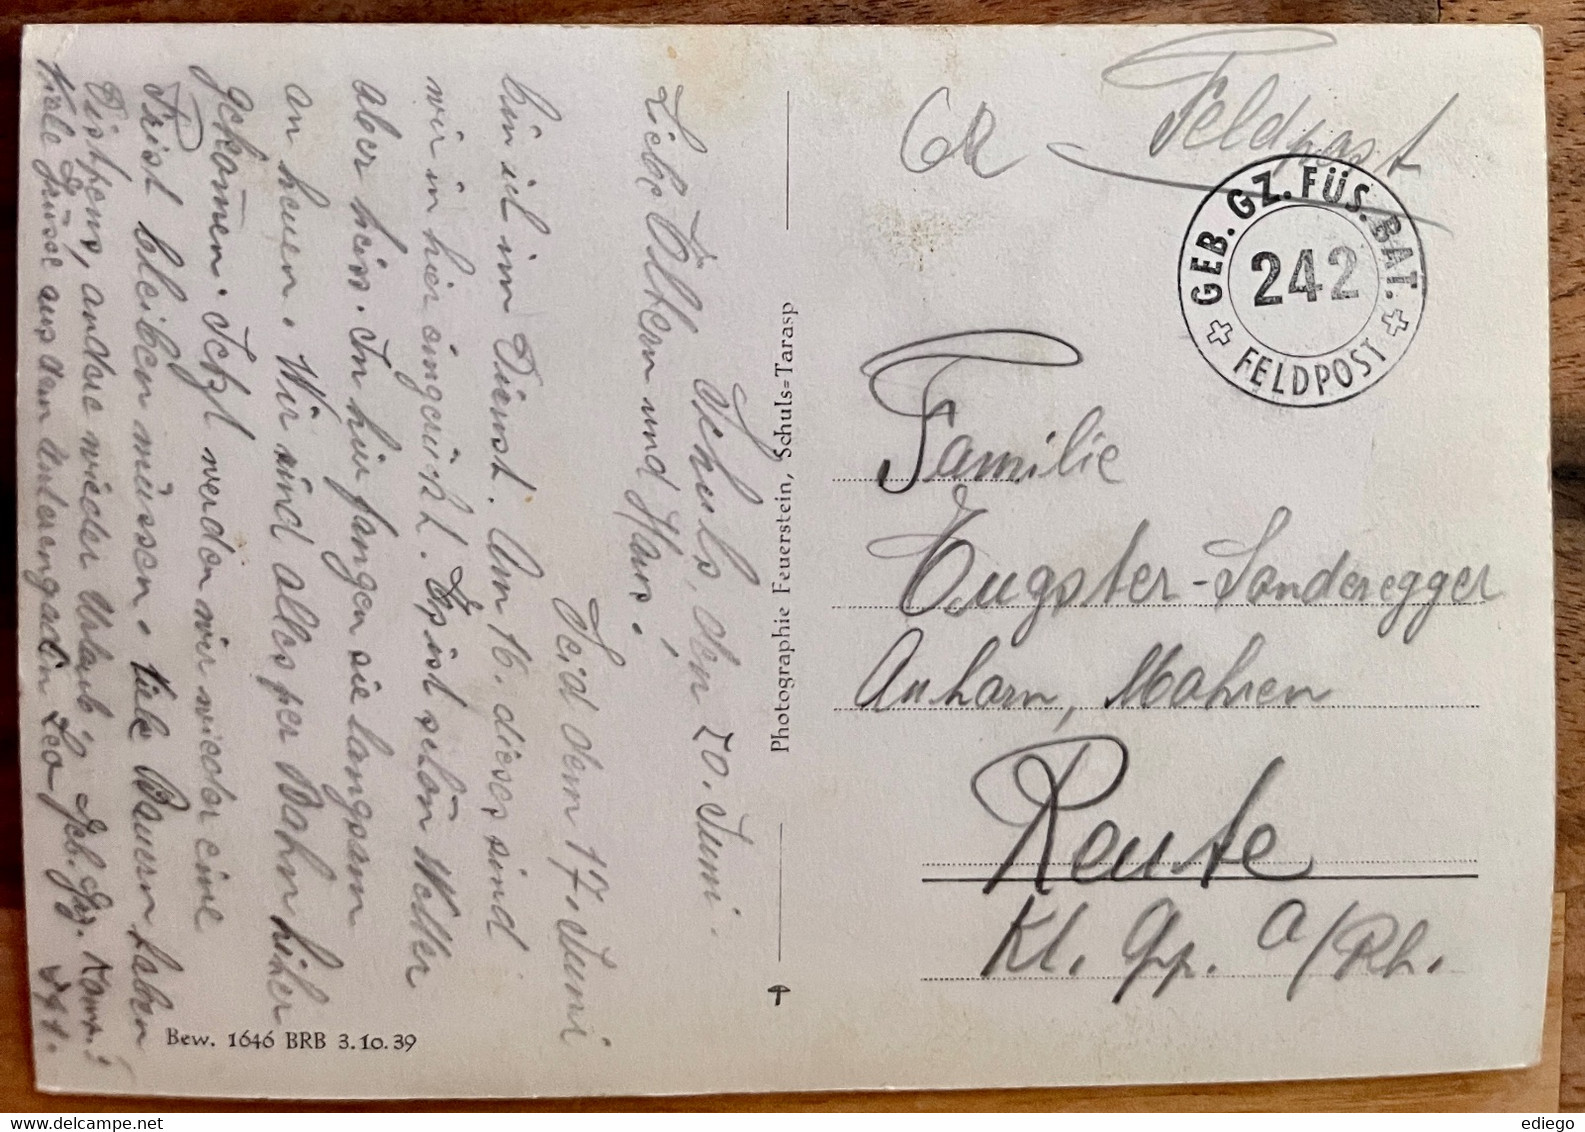 Schuls, den 20. Juni.
Liebe Eltern und Hans,
Seid dem 17. Juni
bin ich im Dienst. Am 16. dieses sind
wir in hier eingerückt. Es ist schön Wetter
aber heiss. In hier fangen sie langsam
an heuen. Wir sind alles per Bahn hiher
gekommen. Jetzt werden wir wieder eine
Frist bleiben müssen. Viele Bauern haben
Dispens, andere wieder Urlaub.
Viele Grüsse aus dem Unterengadin Leo
Geb. Gz. Komp. I
242.
Photographie Feuerstein, Schuls=Tarasp
Bew. 1646 BRB 3.10.39
Feldpost
GEB. GZ. FÜS. BAT.
242
FELDPOST
Familie
Eugster-Sonderegger
Mohren
Reute
Kt. App. a/Rh.
ediego